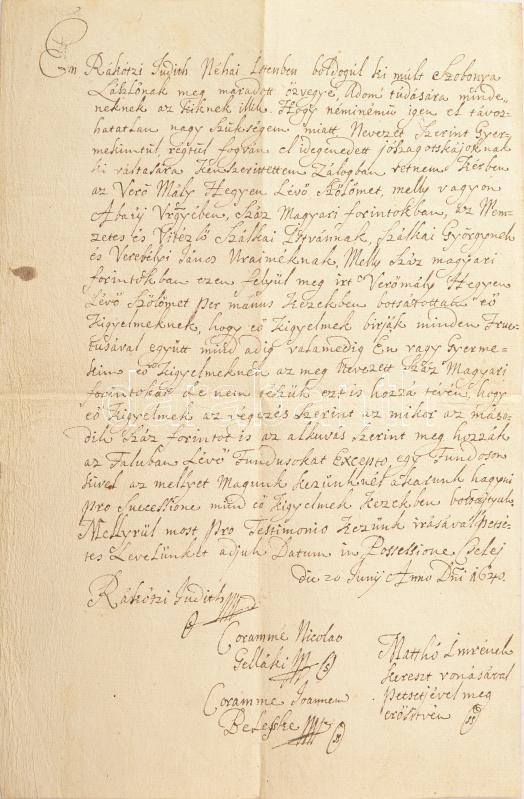 Én Rákótzi Judith Néhai Istenben bóldogúl ki múlt Szobonya
Lászlónak meg maradott özvegye, Adom túdására minde„
neknek az kiknek illik. Hogy néminémű igen el távoz„
hatatlan nagy Szükségem miatt Nevezet Szerint Gyer„
mekimtúl, régtúl fogván el idegenedett jószágotskájoknak
ki váltására Kénszerittettem Zálogban vetnem Kérben
az Verő Mály Hegyen Lévő Szőlőmet, melly vagyon
Abaúj Vrgyében, Száz Magyari forintokban, az Nem„
zetes és Vitézlő Szálkai Istvánnak, Szálkai Györgynek
és Verebélyi János Uraiméknak, Melly Száz magyari
forintokban ezen felyúl meg írt Verőmály Hegyen
Lévő Szőlőmet per manus Kezekben botsátottam eő
Kigyelmeknek, hogy eő Kigyelmek birják minden Fruc„
tusával együtt mind adig valamedig Én vagy Gyerme„
keim eő Kigyelmeknek az meg Nevezett Száz Magyari
forintokat le nem tészük ezt is hozzá tévén, hogy
eő Kigyelmek az végezés Szerint az mikor az más„
dik Száz forintot is az alkuvás Szerint meg hozzák
az Faluban Lévő Fundusokat Excepto egy Fundoson
kivel az mellyet Magunk kezünknél akarunk hagyni
pro Successione mind eő Kigyelmek Kezekben botsátyuk.
Mellyrűl most pro Testimonio Kezünk irásával petsé„
tes Levelünket adjuk Datum in Possessione Cselej
die 20 Junij Anno Dni 1640.
Rákótzi Judith
Coramme Nicolao
Gelláki
Coramme Joannem
Beleske
Matthó Imrének
kereszt vonásával
petsétjével meg
erősitvén
darabanth